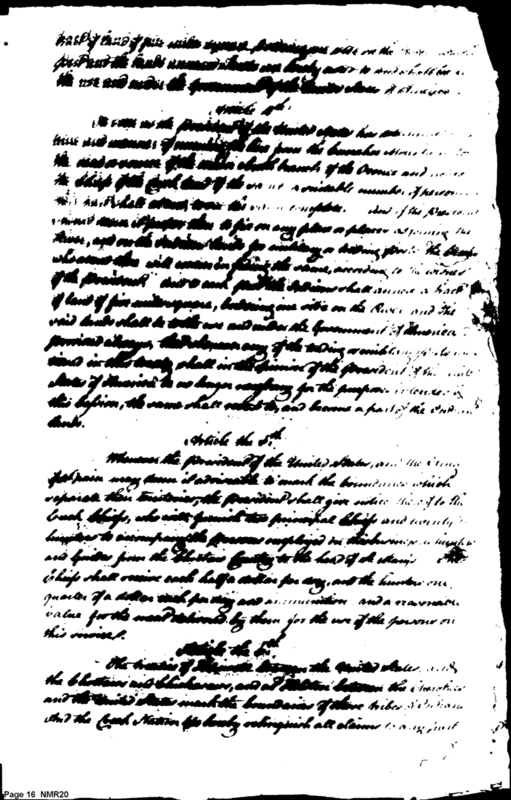 tract of land of five miles square bordering one side on the
post and the lands annexed thereto are hereby ceded to and shall be
the use and under the Government of the United States of America.
Article 4th:
As soon as the President of the United States has
time and manner of running the line from the
the head or source of the main south branch of the Oconee and
the Chiefs of the Creek land of the same a suitable number of persons
shall attend to see the same completed. And if the President
should deem it proper then to fix on any place or places adjoining the
River, and on the Indian lands for military or trading posts: the Creeks
who attend there will concur in fixing the same, according to the wishes
of the President. And to each post the Indians shall annex a tract
of land of five miles square, bordering one side on the River. And the
said lands shall be to the use and under the Government of America
Provided always, that whenever any of the trading or military posts
tioned in this treaty, shall in the opinion of the President of the
States of America be no longer necessary for the purposes intended
this cession, the same shall revert to, and become a part of the Indian
lands.
Article the 5th.
Whenever the President of the United States, and the King
of Spain may deem it advisable to mark the boundaries which
separate their territories, the President shall give notice thereof to the
Creek Chiefs, who will furnish two principal Chiefs and twenty
hunters to accompany the persons employed in this business as hunters
and guides from the Choctaw Country to the head of St Marys
Chiefs shall receive each half a dollar per day, and the hunters one
quarter of a dollar each per day and ammunition and a reasonable
value for the meat delivered by them for the use of the persons on
this service.
Article the 6th.
The treaties of Hopewell between the United States
the Choctaws and Chickasaws, and at Holston between the Cherokees
and the United States mark the boundaries of those tribes of Indians
And the Creek Nation do hereby relinquish all claims to any part
Page 16 NMR20